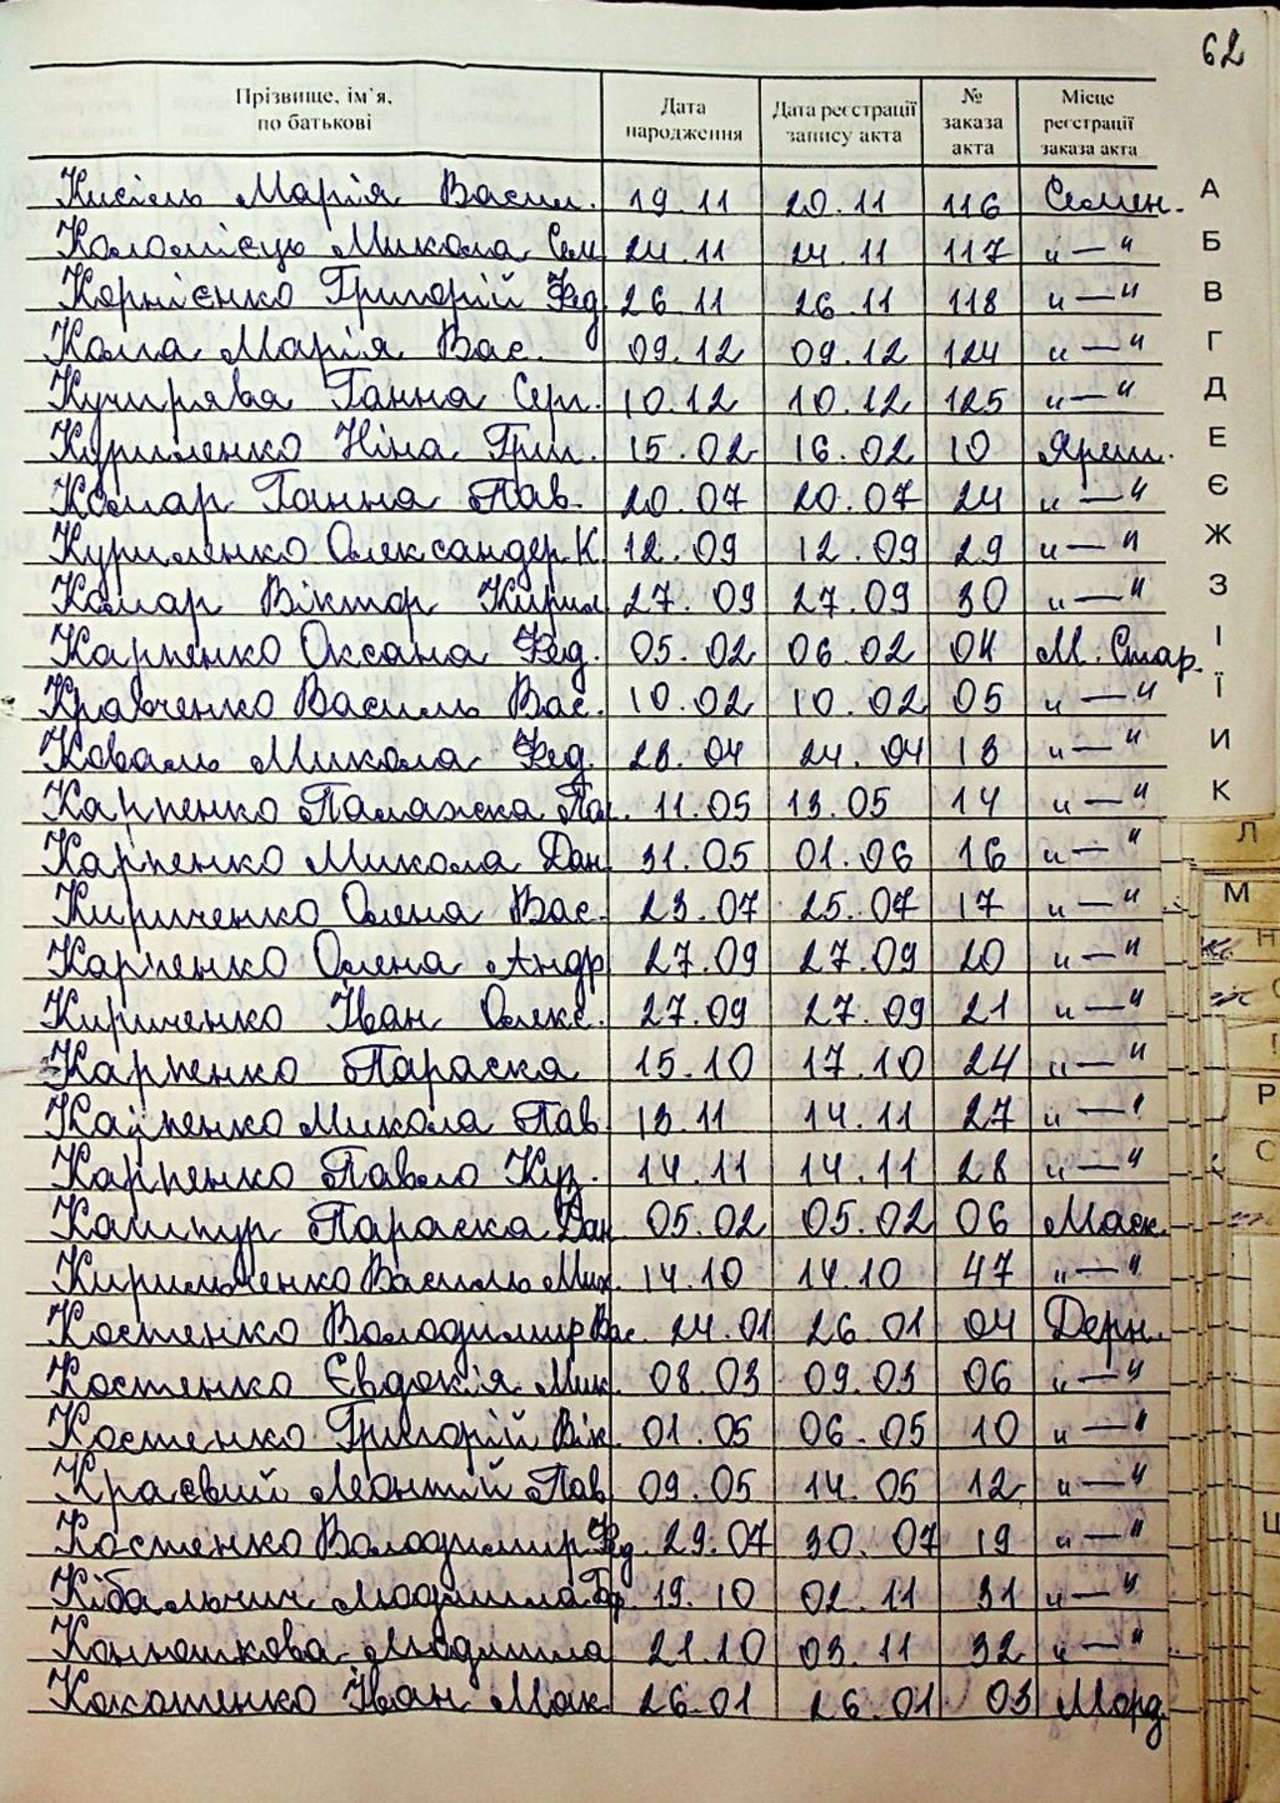 62
Прізвище, ім'я, по батькові Дата народження Дата реєстрації запису акта № заказа акта Місце реєстрації заказа акта
Кисіль Марія Васил. 19.11 20.11 116 Семен. А
Коломієць Микола Сем 24.11 24.11 117 "—" Б
Корнієнко Григорій Фед 26.11 26.11 118 "—" В
Марія Вас. 09.12 09.12 124 "—" Г
Кучирява Ганна Серг. 10.12 10.12 125 "—" Д
Куриленко Ніна Григ. 15.02 16.02 10 Яреш. Е
Комар Ганна Пав. 20.07 20.07 24 "—" Є
Куриленко Олександер К. 12.09 12.09 29 "—" Ж
Комар Віктор Кирил 27.09 27.09 30 "—" З
Карпенко Оксана Фед. 05.02 06.02 04 М. Стар. І
Кравченко Василь Вас. 10.02 10.02 05 "—" Ї
Коваль Микола Фед. 23.04 24.04 13 "—" И
Карпенко Палажка Пав. 11.05 13.05 14 "—" К
Л
Карпенко Микола Дан 31.05 01.06 16 "—"
Кириченко Олена Вас. 23.07 25.07 17 "—" М
Н
Карпенко Олена Андр 27.09 27.09 20 "—"
Кириченко Іван Олекс. 27.09 27.09 21 "—"
Карпенко Параска 15.10 17.10 24 "—"
Р
Карпенко Микола Пав 13.11 14.11 27 "—"
Карпенко Павло Куз. 14.11 14.11 28 "—" С
Кашпур Параска Дан 05.02 05.02 06 Маск.
Кирильченко Василь Мих. 14.10 14.10 47 "—"
Костенко Володимир Вас. 24.01 26.01 04 Дерн.
Костенко Євдокія Мик. 08.03 09.03 06 "—"
Костенко Григорій Вік. 01.05 06.05 10 "—"
Краєвий Леонтій Пав 09.05 14.05 12 "—"
Костенко Володимир Фед. 29.07 30.07 19 "—"
Кібальчич Людмила Гр. 19.10 02.11 31 "—"
Конюшкова Людмила 21.10 03.11 32 "—"
Іван Мак 26.01 26.01 03 Морд.